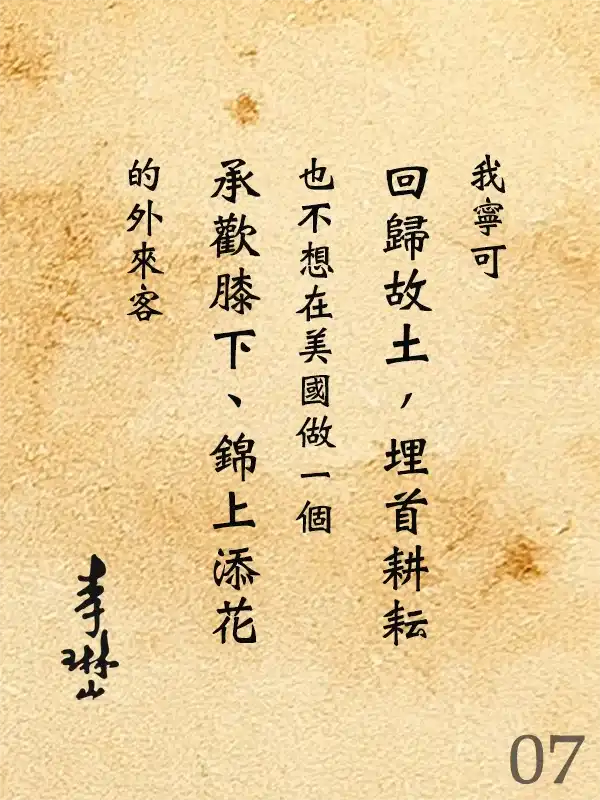 我寧可
回歸故土，埋首耕耘
也不想在美國做一個
承歡膝下、錦上添花
的外來客
李琳山
07